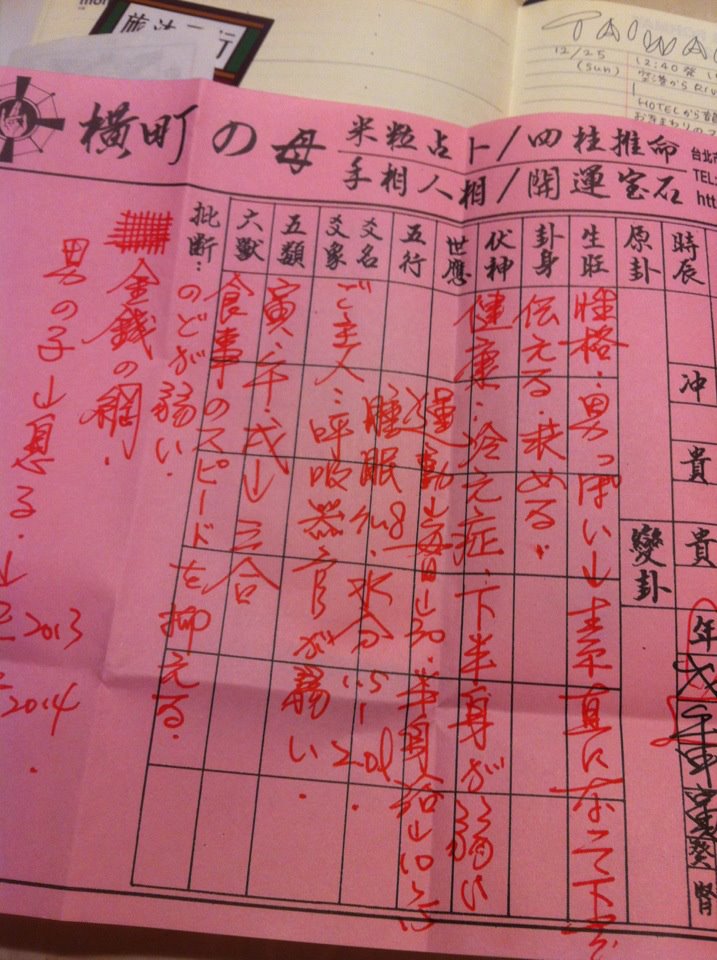 TAIWA
12/25
(sun)
12:40発
空港から
HOTELから
横町の母
米粒占卜/四柱推命
手相人相/開運宝石
台北市
TEL:
htt
時辰
冲
貴
貴
年
原卦
變卦
生旺
卦身
伏神
世應
五行
爻名
爻象
五類
六獸
批断:
性格:男っぽい→素直になって下さ
伝える・求める.
健康:冷え症、下半身が弱い
運動→毎日→30分.半身浴→10〜15
睡眠
水分1.5〜2.0l.
ご主人:呼吸器官が弱い.
寅・午・戌→三合
食事のスピードを抑える.
のどが弱い.
金銭の網.
男の子→
2013
2014.